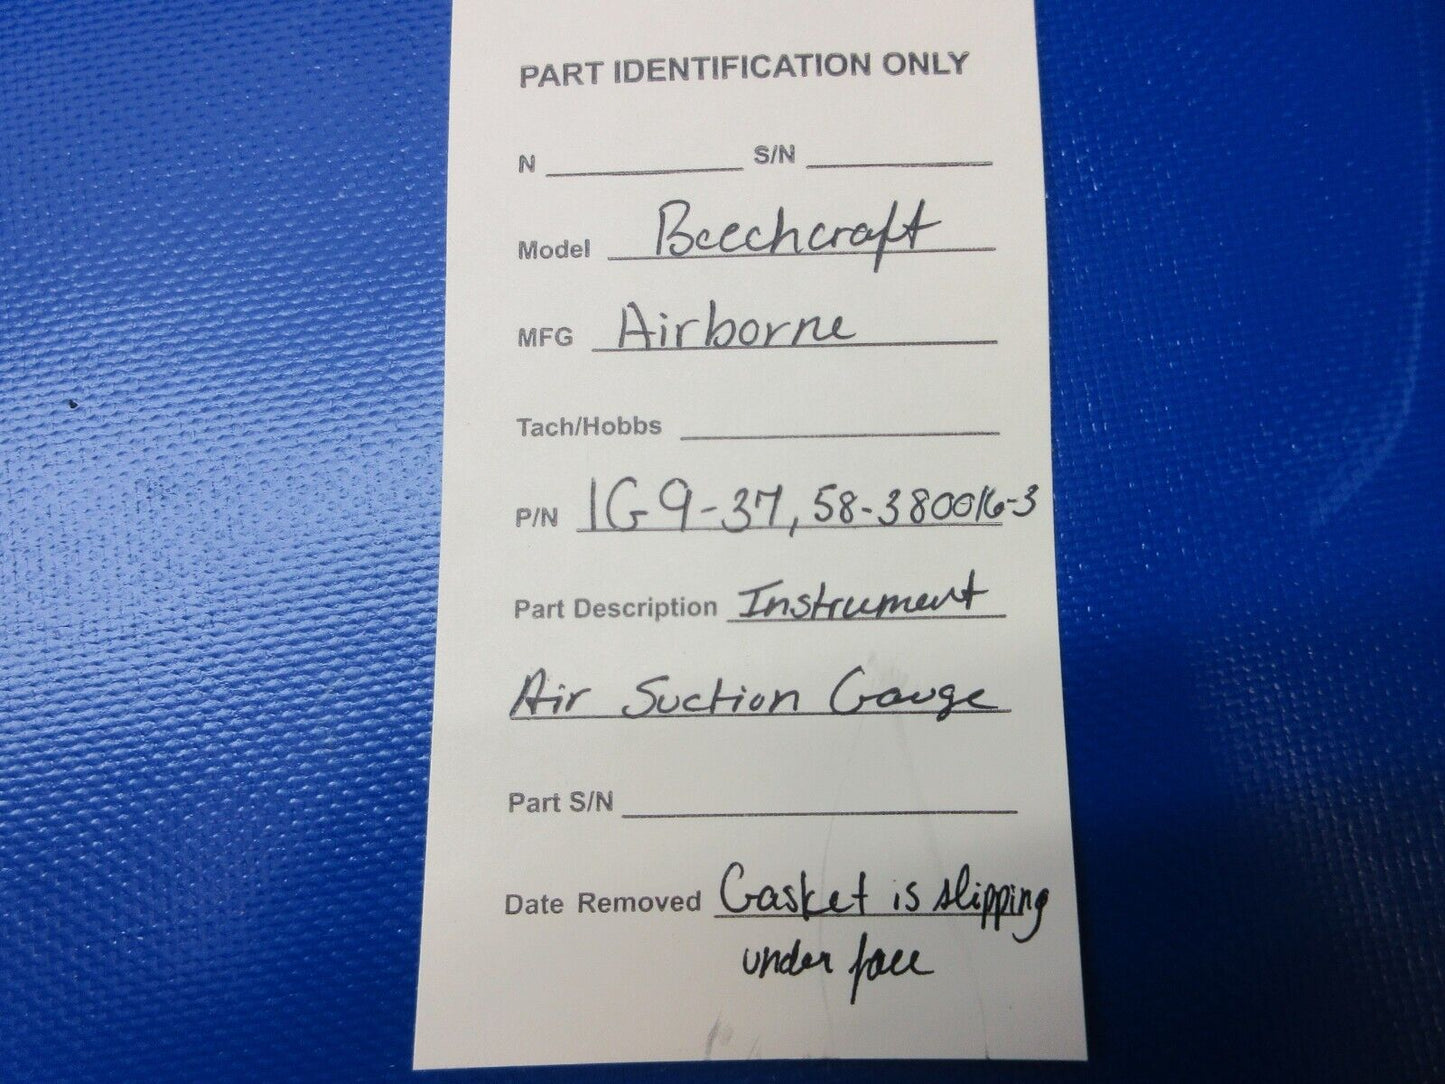 PART IDENTIFICATION ONLY
N S/N
Model Beechcraft
MFG Airborne
Tach/Hobbs
P/N 1G9-37, 58-380016-3
Part Description Instrument
Air Suction Gauge
Part S/N
Date Removed Gasket is slipping
under face